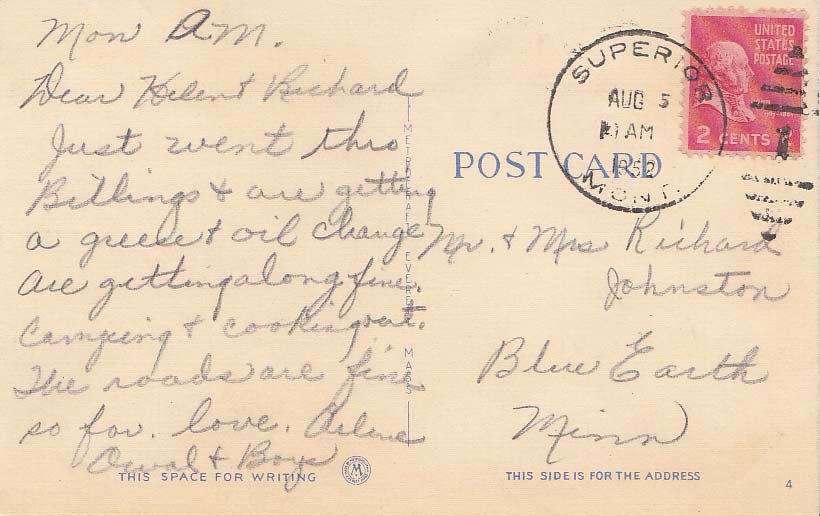 Mon A.M.
Dear Helen & Richard
Just went thro
Billings & are getting
a greese & oil change
are getting along fine.
Camping & cooking out.
The roads are fine
so far. love. Arlene
Orval & Boys
THIS SPACE FOR WRITING
METROCRAFT EVERETT MASS
M
SUPERIOR
AUG 5
AM
1952
MONT.
UNITED
STATES
POSTAGE
2 CENTS
POST CARD
Mr. & Mrs Richard
Johnston
Blue Earth
Minn
THIS SIDE IS FOR THE ADDRESS
4